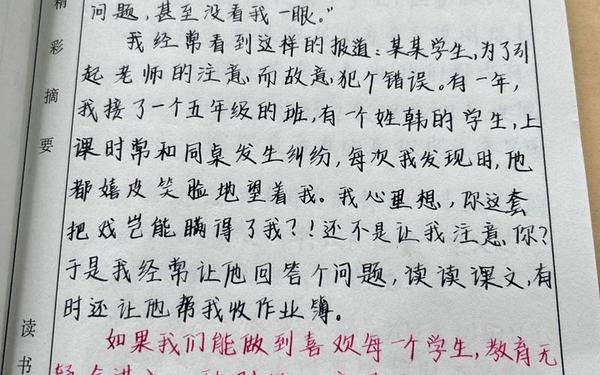 精彩摘要
问题，甚至没看我一眼。”
我经常看到这样的报道：某某学生，为了引
起老师的注意而故意犯个错误。有一年，
我接了一个五年级的班，有一个姓韩的学生，上
课时常和同桌发生纠纷，每次我发现时，他
都嬉皮笑脸地望着我。我心里想，你这套
把戏岂能瞒得了我？！还不是让我注意你？
于是我经常让他回答个问题，读读课文，有
时还让他帮我收作业簿。
读书
如果我们能做到喜欢每一个学生，教育无